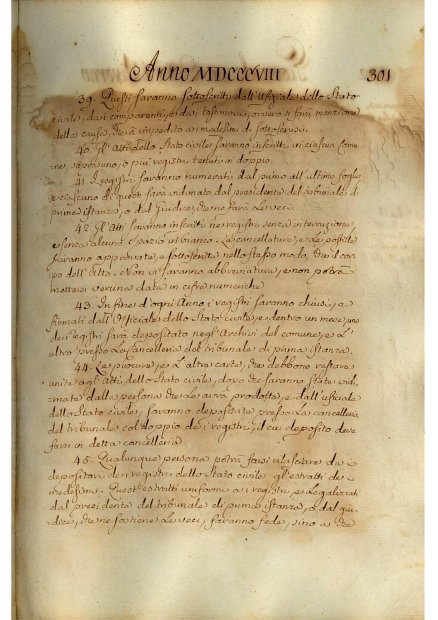 Anno MDCCCVIII 301
39. Questi saranno sottoscritti dall'Ufiziale dello Stato
civile, dai comparenti, e dai testimonj, ovvero si farà menzione
della causa, che à impedito ai medesimi di sottoscriversi.
40. Gli Atti dello Stato civile saranno inscritti in ciascun Comu-
ne, sopra uno, o più registri tenuti in doppio.
41. I registri saranno numerati dal primo all'ultimo foglio,
e ciascuno di questi sarà vidimato dal presidente del tribunale di
prima istanza, o dal Giudice, che ne farà le veci.
42. Gl'Atti saranno inscritti ne registri senza interruzione,
e senza alcuno spazio in bianco. Le cancellature, e le postille
saranno approvate, e sottoscritte nello stesso modo, che il cor-
po dell'Atto. Non vi saranno abbreviature, e non potrà
mettersi veruna data in cifre numeriche
43. In fine d'ogni Anno i registri saranno chiusi, e
firmati dall'Officiale dello Stato civile, e dentro un mese, uno
dei registri sarà depositato negl'Archivi del comune, e l'
altro presso la cancelleria del tribunale di prima istanza.
44. Le procure, e l'altre carte, che debbono restare
unite agl'Atti dello Stato civile, dopo che saranno state vidi-
mate dalla persona che le avrà prodotte, e dall'ufiziale
dello Stato civile, saranno depositate presso la cancelleria
del tribunale col doppio dei registri, il cui deposito deve
farsi in detta cancelleria
45. Qualunque persona potrà farsi rilasciare da i
depositari dei registri dello Stato civile gl'estratti de
medesimi. Quest'estratti uniformi a i registri, e legalizzati
dal presidente del tribunale di prima istanza, o dal giu-
dice, che ne sostiene le veci, faranno fede, sino a che